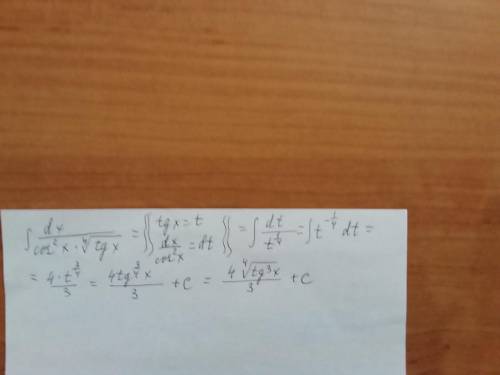 ∫ dx / (cos²x · ⁴√(tg x)) = {{ tg x = t ; dx/cos²x = dt }} = ∫ dt / t^(1/4) = ∫ t^(-1/4) dt =
= 4 · t^(3/4) / 3 = 4tg^(3/4) x / 3 + c = 4 ⁴√(tg³x) / 3 + c